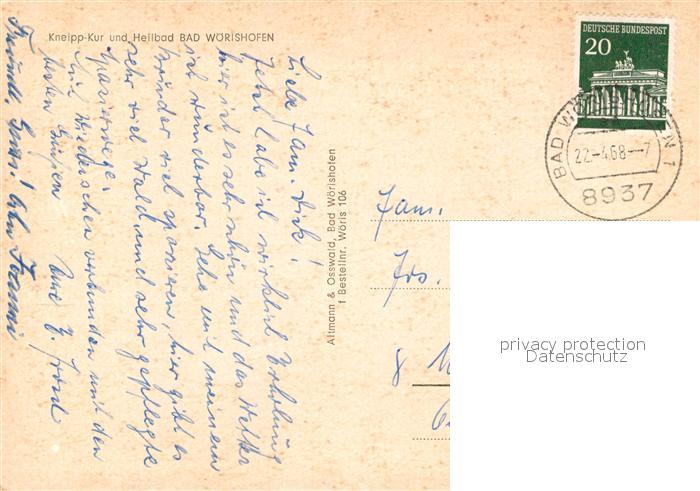 Kneipp-Kur und Heilbad BAD WÖRISHOFEN
Liebe Fam. Dirk!
Jetzt habe ich wirklich Erholung
hier ist es sehr schön und das Wetter
ist wunderbar. Gehe mit meinem
Bruder viel spazieren, hier gibt es
sehr viel Wald und sehr gepflegte
Spazierwege.
Auf Wiedersehen verbunden mit den
besten Grüßen Eure
Freundl. Grüße!
Altmann & Osswald, Bad Wörishofen
f Bestellnr. Wöris 106
DEUTSCHE BUNDESPOST
20
BAD WÖRISHOFEN 1
22-4.68--7
8937
Fam.
Jos.
8 M
privacy protection
Datenschutz